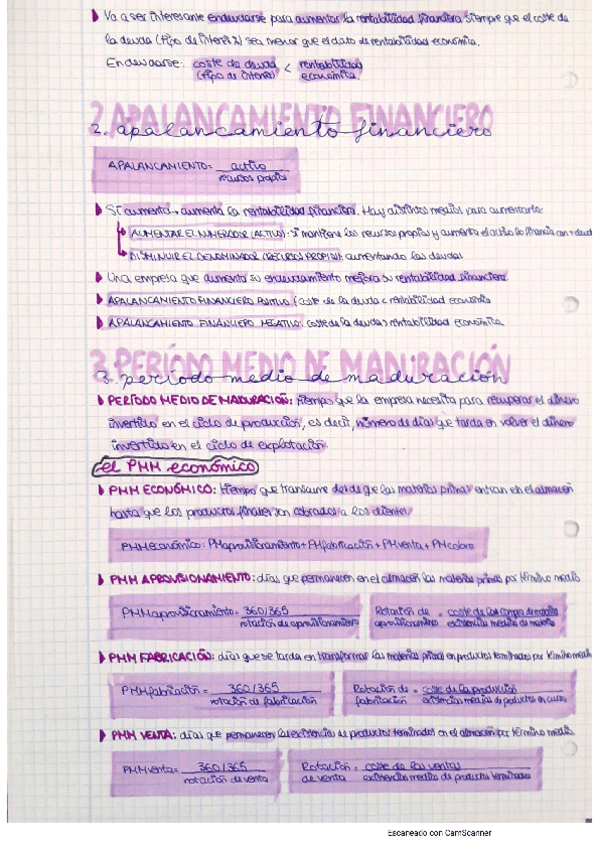 Va a ser interesante endeudarse para aumentar la rentabilidad financiera siempre que el coste de
la deuda (tipo de interés %) sea menor que el dato de rentabilidad económica.
Endeudarse: coste de deuda (tipo de interés) < rentabilidad económica
2. APALANCAMIENTO FINANCIERO
2. apalancamiento financiero
APALANCAMIENTO = activo / recursos propios
Si aumenta → aumenta la rentabilidad financiera. Hay distintos medios para aumentarlo:
AUMENTAR EL NUMERADOR (ACTIVO): si mantiene los recursos propios y aumenta el activo lo financia con + deuda
DISMINUIR EL DENOMINADOR (RECURSOS PROPIOS): aumentando las deudas
Una empresa que aumenta su endeudamiento mejora su rentabilidad financiera
APALANCAMIENTO FINANCIERO POSITIVO: coste de la deuda < rentabilidad economía
APALANCAMIENTO FINANCIERO NEGATIVO: coste de la deuda > rentabilidad económica
3. PERÍODO MEDIO DE MADURACIÓN
3. período medio de maduración
PERÍODO MEDIO DE MADURACIÓN: tiempo que la empresa necesita para recuperar el dinero
invertido en el ciclo de producción, es decir, número de días que tarda en volver el dinero
invertido en el ciclo de explotación.
el PMM económico
PMM ECONÓMICO: tiempo que transcurre desde que las materias primas entran en el almacén
hasta que los productos finales son cobrados a los clientes
PMMeconómico: PMaprovisionamiento + PMfabricación + PMventa + PMcobro
PMM APROVISIONAMIENTO: días que permanecen en el almacén las materias primas por término medio
PMMaprovisionamiento = 360/365 / rotación de aprovisionamiento
Rotación de aprovisionamiento = coste de las compras de materiales / existencias medias de materiales
PMM FABRICACIÓN: días que se tarda en transformar las materias primas en productos terminados por término medio
PMMfabricación = 360/365 / rotación de fabricación
Rotación de fabricación = coste de la producción / existencias medias de productos en curso
PMM VENTA: días que permanecen las existencias de productos terminados en el almacén por término medio.
PMMventa = 360/365 / rotación de venta
Rotación de venta = coste de las ventas / existencias medias de productos terminados
Escaneado con CamScanner